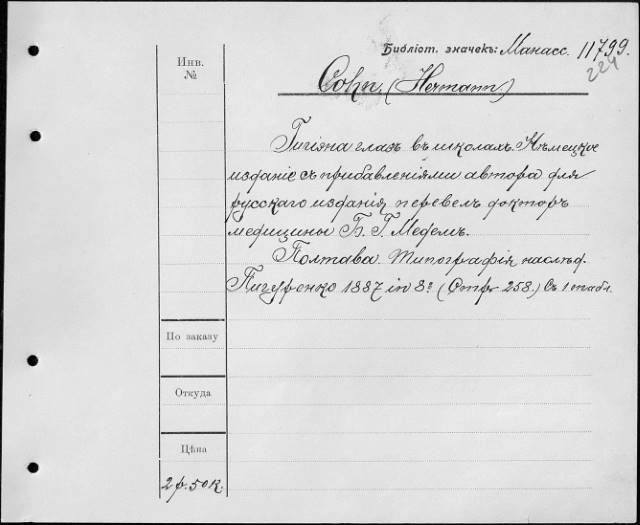 Инв. №
Библіот. значекъ: Манасс. 11799.
224
Cohn. (Hermann)
Гигіэна глазъ въ школахъ. Нѣмецкое
изданіе съ прибавленіями автора для
русскаго изданія перевелъ докторъ
медицины Б. Г. Медемъ.
Полтава. Типографія наслѣд.
Пигуренко 1887 in 8º (Стр. 258.) Съ 1 табл.
По заказу
Откуда
Цѣна
2 р. 50 к.